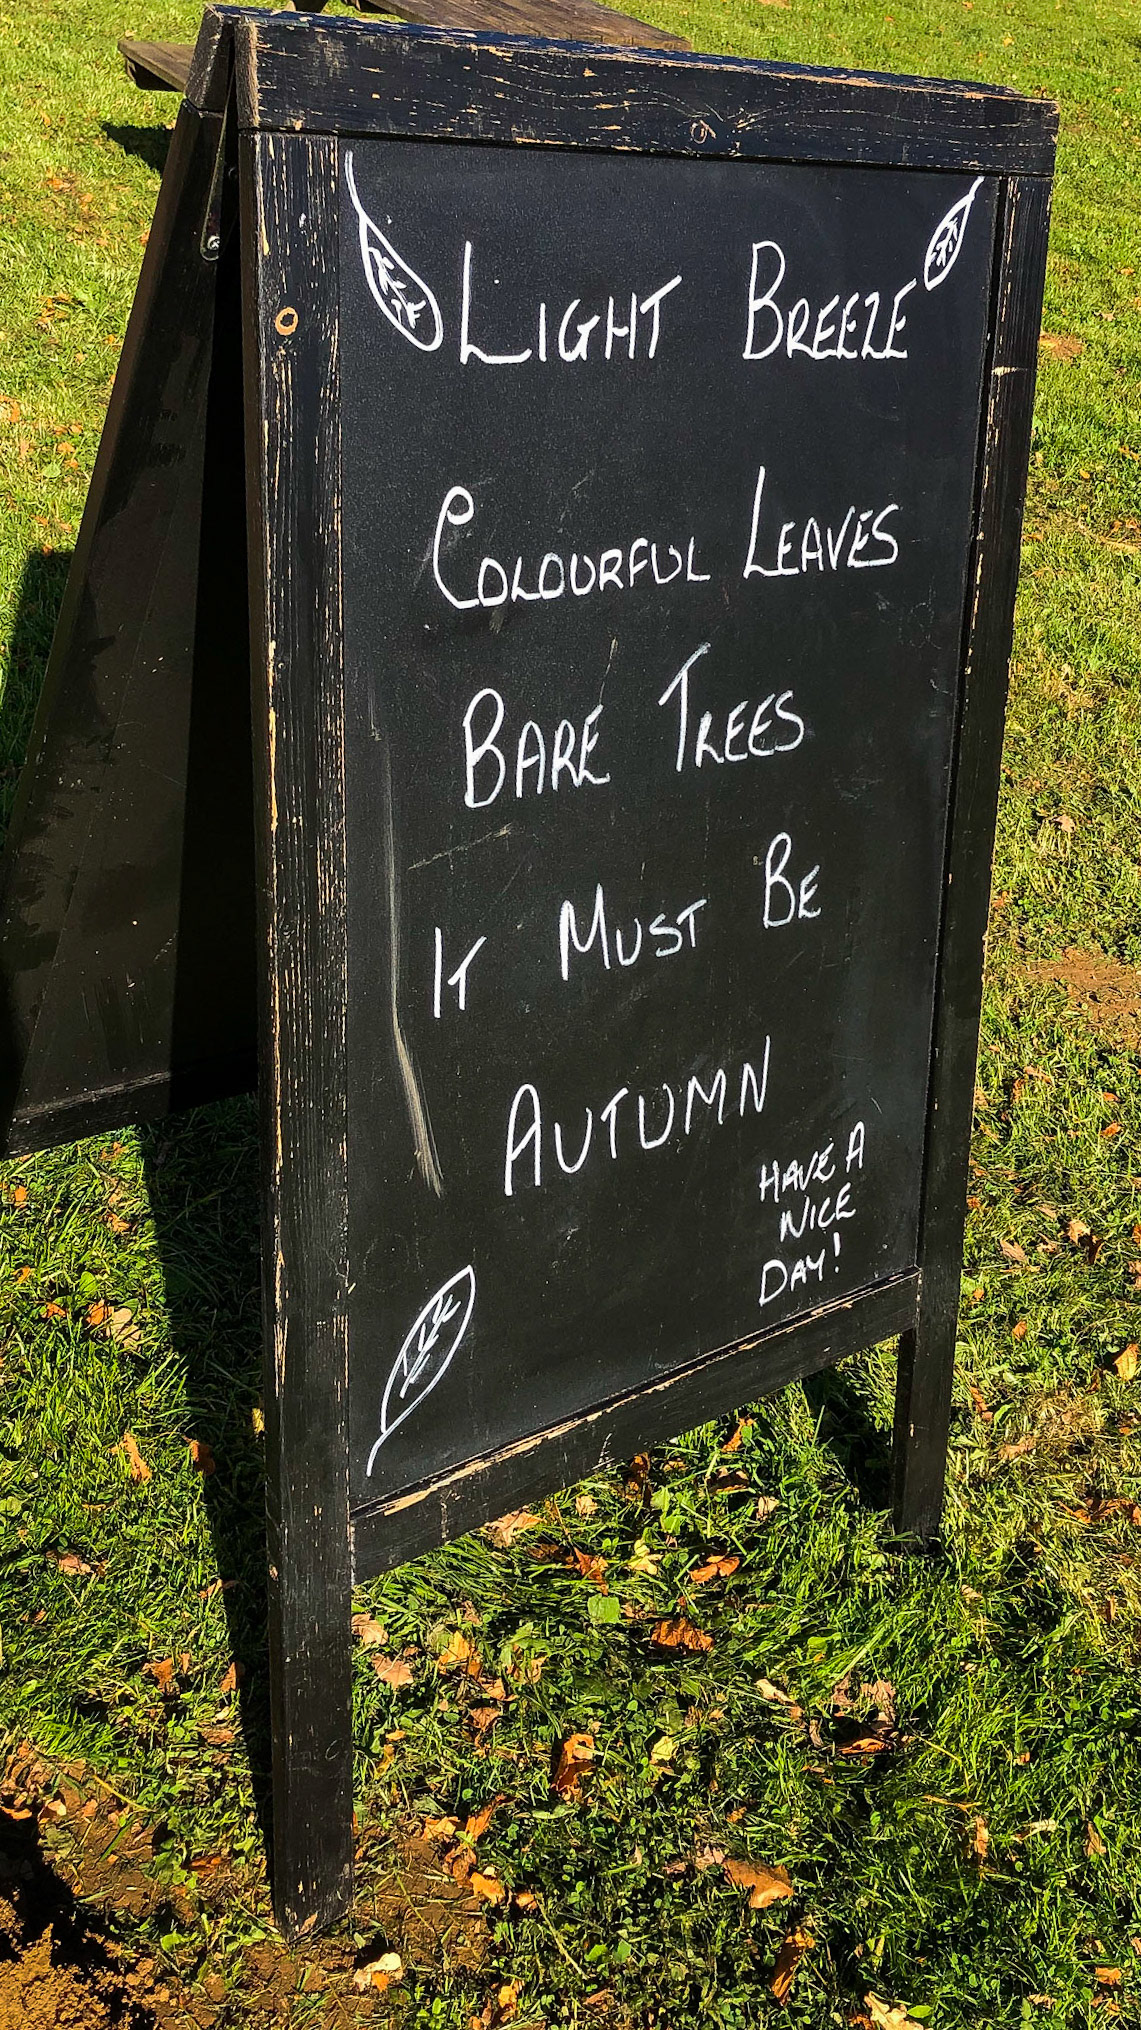 Light Breeze
Colourful Leaves
Bare Trees
It Must Be
Autumn
Have A
Nice
Day!